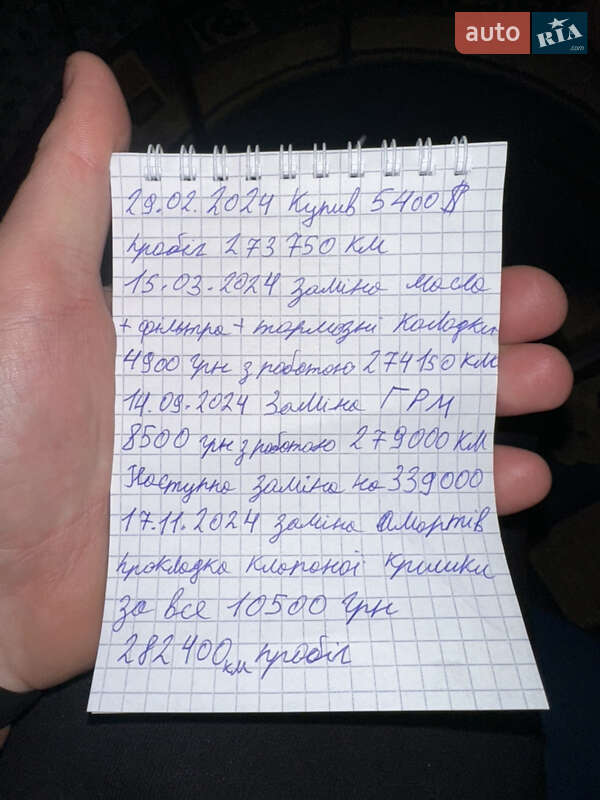 auto RIA.com
29.02.2024 Купив 5400$
пробіг 273 750 км
15.03.2024 заміна масла
+ фільтра + тормозні колодки
4900 грн з роботою 274150 км
14.09.2024 Заміна ГРМ
8500 грн з роботою 279000 км
Наступна заміна на 339000
17.11.2024 заміна Амортів
прокладка клапаної кришки
за все 10500 грн
282400 км пробіг